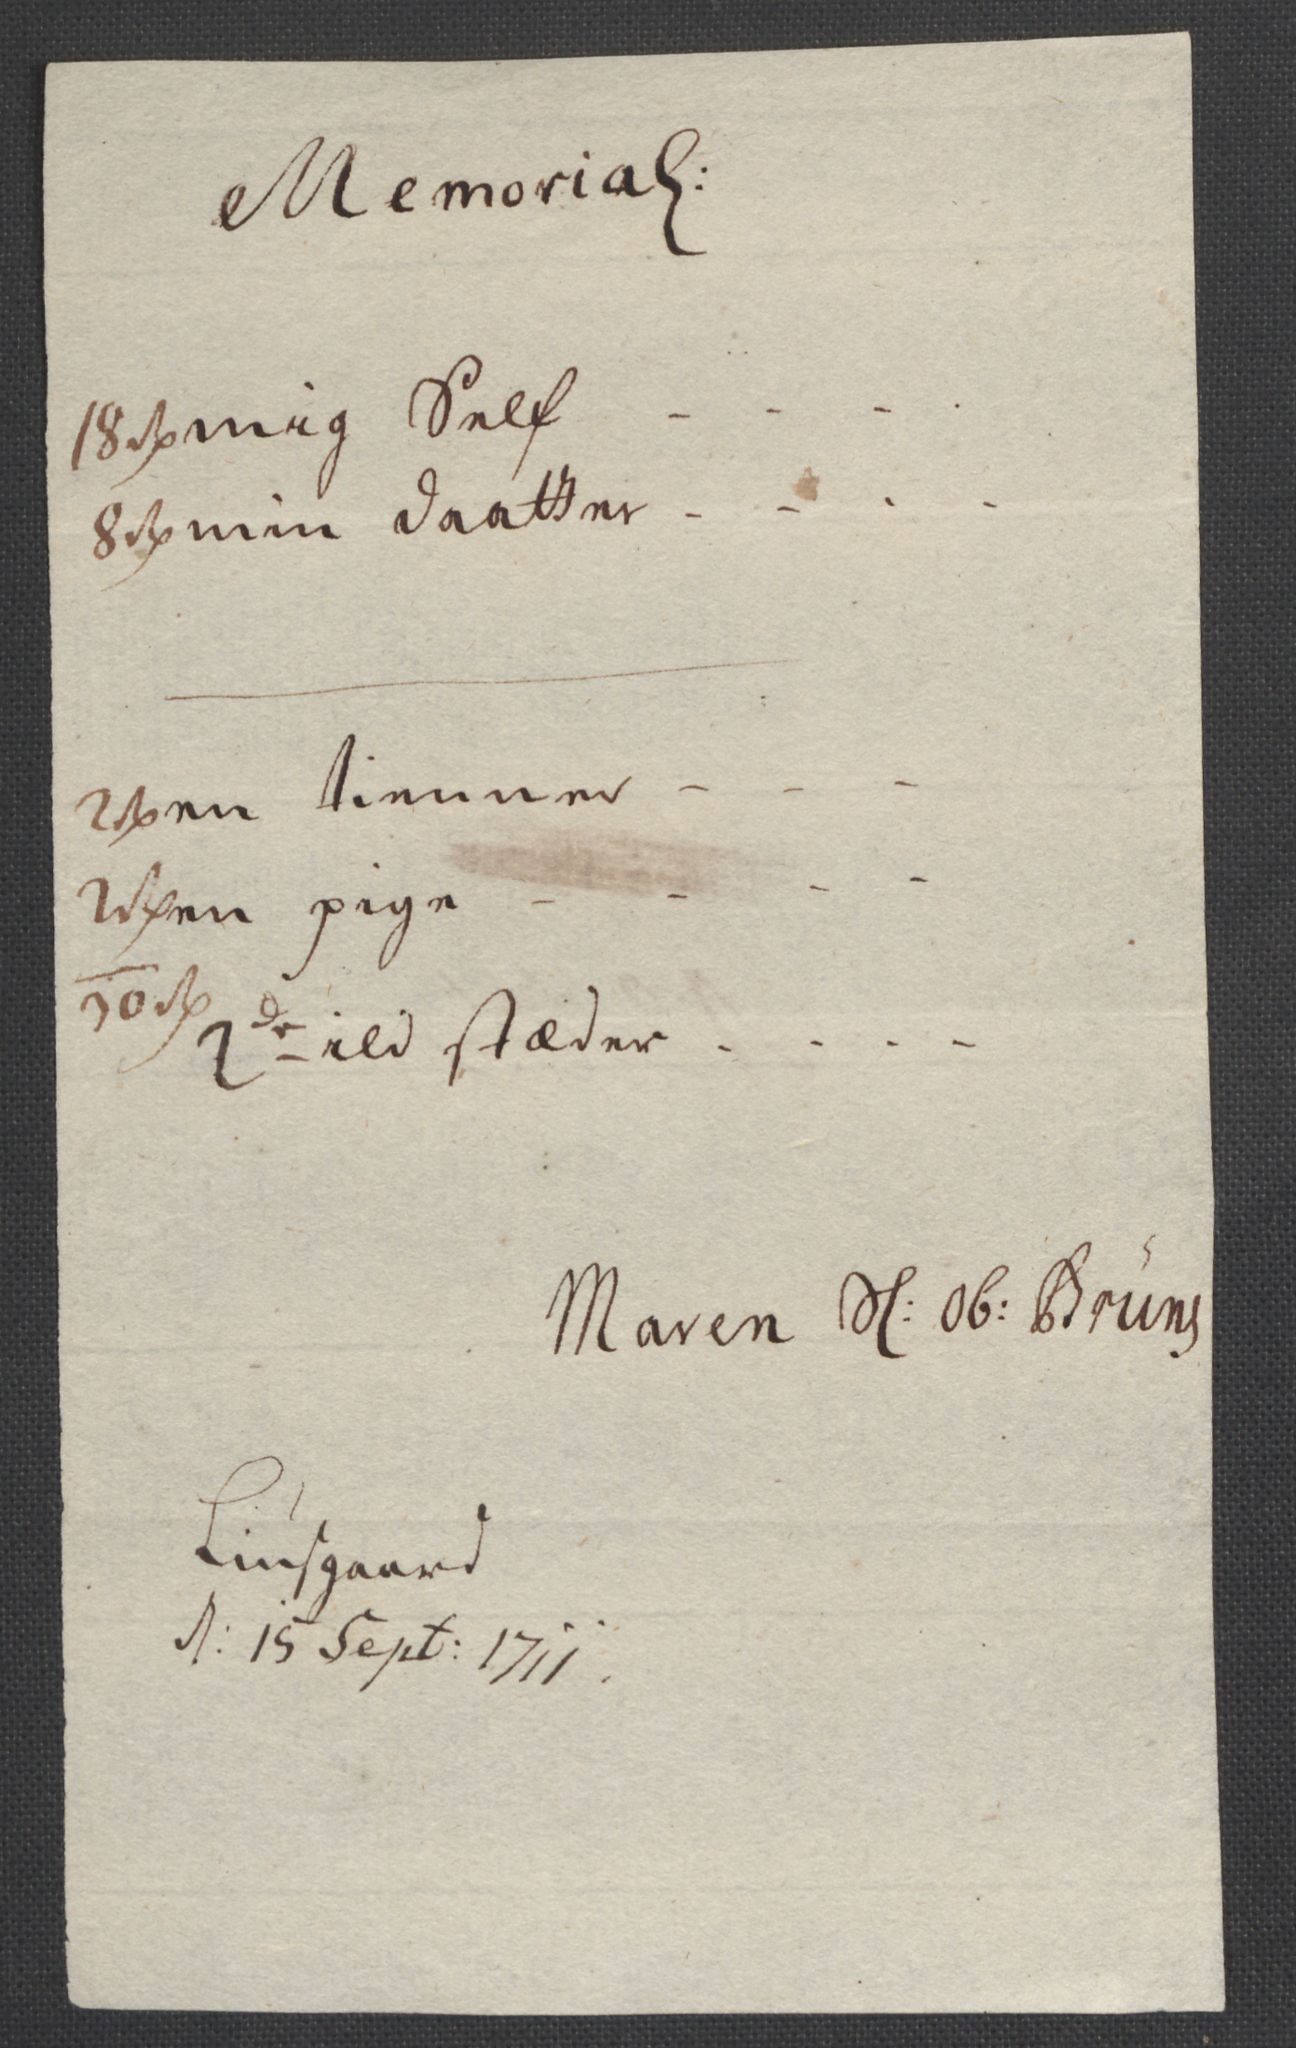 Memorial:
18 rß mig Self - - - -
8 rß min daatter - - - -
2 rß en tienner - - -
2 rß en pige - - - -
30 rß
2de ild stæder - - - -
Maren Sl: Ob: Brüns
Liusgaard
d: 15 Sept: 1711.